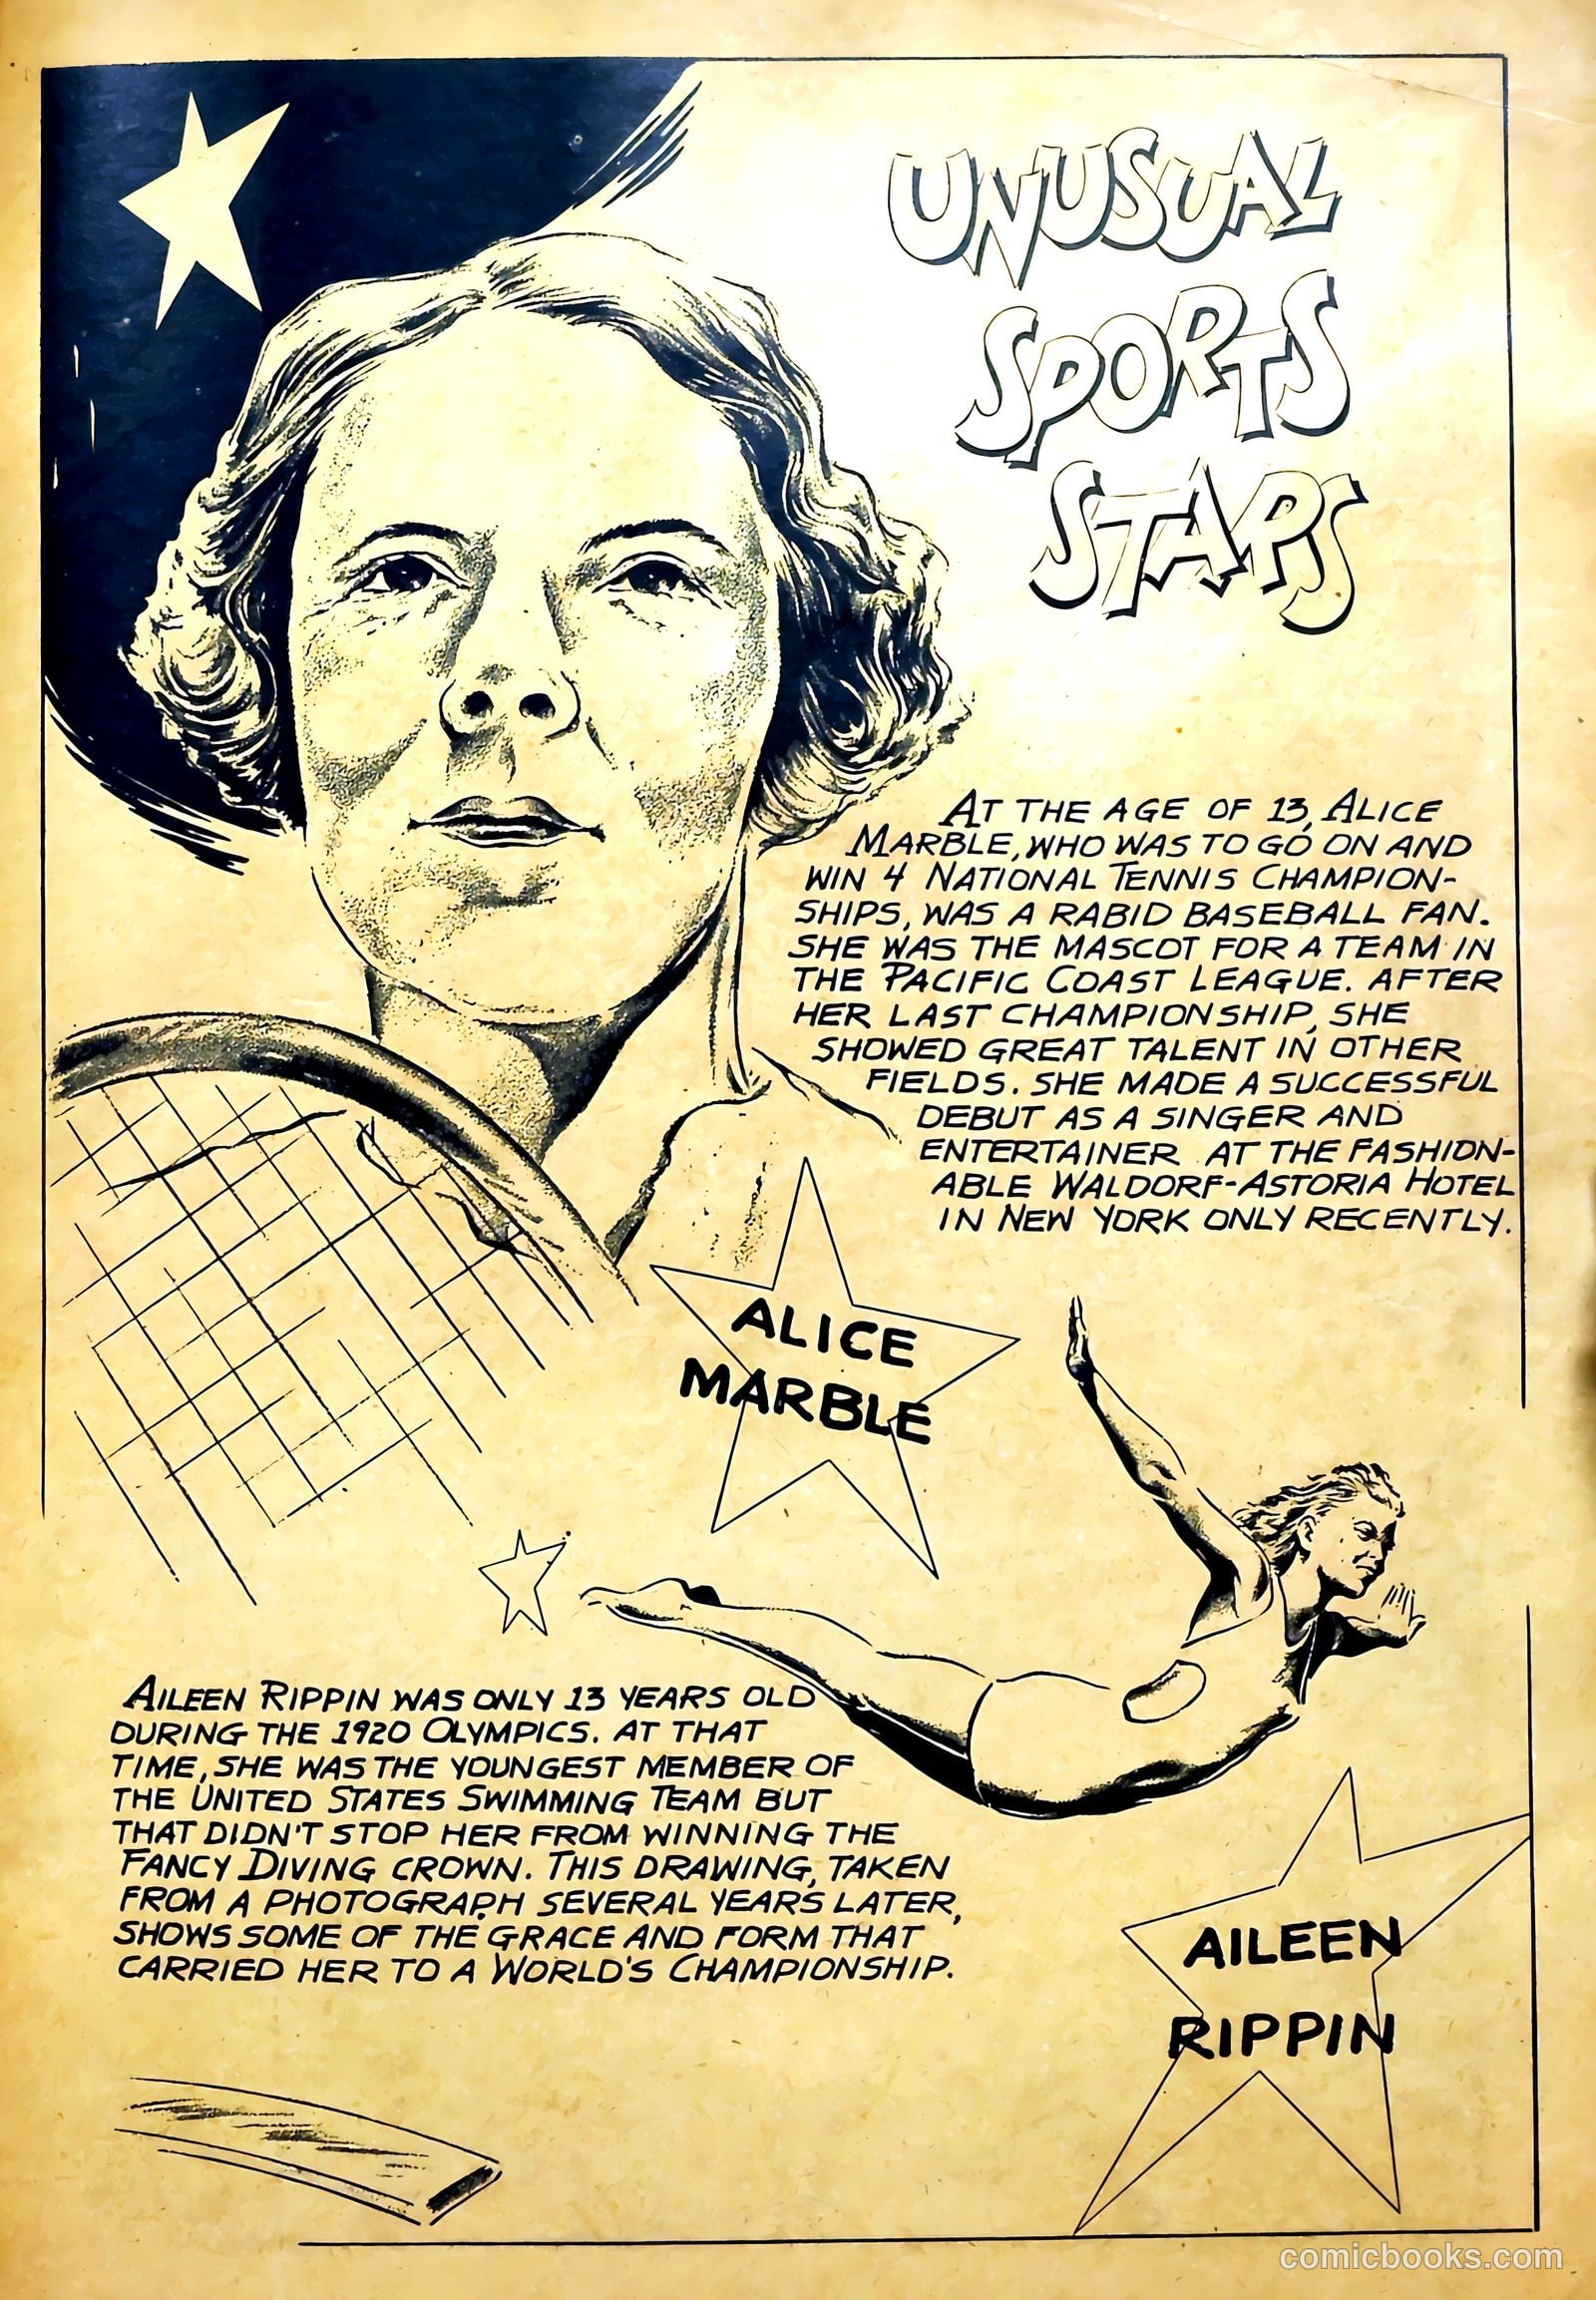 UNUSUAL
SPORTS
STARS
AT THE AGE OF 13, ALICE
MARBLE, WHO WAS TO GO ON AND
WIN 4 NATIONAL TENNIS CHAMPION-
SHIPS, WAS A RABID BASEBALL FAN.
SHE WAS THE MASCOT FOR A TEAM IN
THE PACIFIC COAST LEAGUE. AFTER
HER LAST CHAMPIONSHIP, SHE
SHOWED GREAT TALENT IN OTHER
FIELDS. SHE MADE A SUCCESSFUL
DEBUT AS A SINGER AND
ENTERTAINER AT THE FASHION-
ABLE WALDORF-ASTORIA HOTEL
IN NEW YORK ONLY RECENTLY.
ALICE
MARBLE
AILEEN RIPPIN WAS ONLY 13 YEARS OLD
DURING THE 1920 OLYMPICS. AT THAT
TIME, SHE WAS THE YOUNGEST MEMBER OF
THE UNITED STATES SWIMMING TEAM BUT
THAT DIDN'T STOP HER FROM WINNING THE
FANCY DIVING CROWN. THIS DRAWING, TAKEN
FROM A PHOTOGRAPH SEVERAL YEARS LATER,
SHOWS SOME OF THE GRACE AND FORM THAT
CARRIED HER TO A WORLD'S CHAMPIONSHIP.
AILEEN
RIPPIN
comicbooks.com